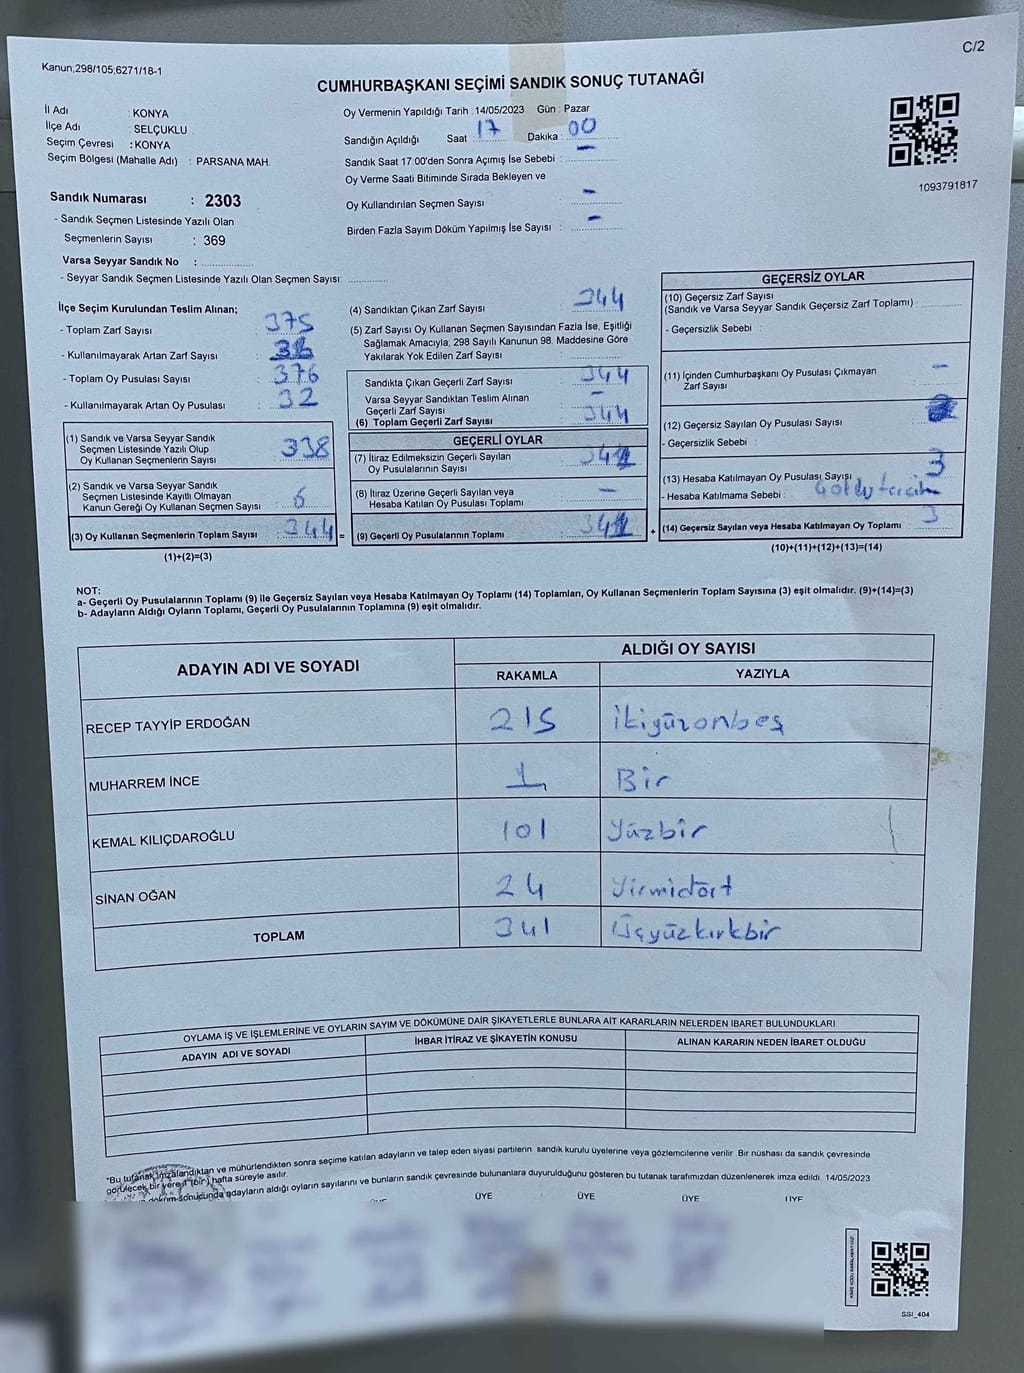 C/2
Kanun;298/105;6271/18-1
CUMHURBAŞKANI SEÇİMİ SANDIK SONUÇ TUTANAĞI
İl Adı : KONYA
İlçe Adı : SELÇUKLU
Seçim Çevresi : KONYA
Seçim Bölgesi (Mahalle Adı) : PARSANA MAH.
Oy Vermenin Yapıldığı Tarih : 14/05/2023 Gün : Pazar
Sandığın Açıldığı Saat : 17 Dakika : 00
Sandık Saat 17:00'den Sonra Açımış İse Sebebi : -
Oy Verme Saati Bitiminde Sırada Bekleyen ve
Oy Kullandırılan Seçmen Sayısı -
Birden Fazla Sayım Döküm Yapılmış İse Sayısı : -
1093791817
Sandık Numarası : 2303
- Sandık Seçmen Listesinde Yazılı Olan
Seçmenlerin Sayısı : 369
Varsa Seyyar Sandık No :
- Seyyar Sandık Seçmen Listesinde Yazılı Olan Seçmen Sayısı:
İlçe Seçim Kurulundan Teslim Alınan;
- Toplam Zarf Sayısı : 375
- Kullanılmayarak Artan Zarf Sayısı :
- Toplam Oy Pusulası Sayısı : 376
- Kullanılmayarak Artan Oy Pusulası : 32
(1) Sandık ve Varsa Seyyar Sandık
Seçmen Listesinde Yazılı Olup
Oy Kullanan Seçmenlerin Sayısı : 338
(2) Sandık ve Varsa Seyyar Sandık
Seçmen Listesinde Kayıtlı Olmayan
Kanun Gereği Oy Kullanan Seçmen Sayısı : 6
(3) Oy Kullanan Seçmenlerin Toplam Sayısı : 344 =
(1)+(2)=(3)
(4) Sandıktan Çıkan Zarf Sayısı : 344
(5) Zarf Sayısı Oy Kullanan Seçmen Sayısından Fazla İse, Eşitliği
Sağlamak Amacıyla; 298 Sayılı Kanunun 98. Maddesine Göre
Yakılarak Yok Edilen Zarf Sayısı :
Sandıkta Çıkan Geçerli Zarf Sayısı : 344
Varsa Seyyar Sandıktan Teslim Alınan
Geçerli Zarf Sayısı : -
(6) Toplam Geçerli Zarf Sayısı : 344
GEÇERLİ OYLAR
(7) İtiraz Edilmeksizin Geçerli Sayılan
Oy Pusulalarının Sayısı : 341
(8) İtiraz Üzerine Geçerli Sayılan veya
Hesaba Katılan Oy Pusulası Toplamı : -
(9) Geçerli Oy Pusulalarının Toplamı : 341 +
GEÇERSİZ OYLAR
(10) Geçersiz Zarf Sayısı
(Sandık ve Varsa Seyyar Sandık Geçersiz Zarf Toplamı) :
- Geçersizlik Sebebi :
(11) İçinden Cumhurbaşkanı Oy Pusulası Çıkmayan
Zarf Sayısı : -
(12) Geçersiz Sayılan Oy Pusulası Sayısı :
- Geçersizlik Sebebi :
(13) Hesaba Katılmayan Oy Pusulası Sayısı : 3
- Hesaba Katılmama Sebebi :
(14) Geçersiz Sayılan veya Hesaba Katılmayan Oy Toplamı : 3
(10)+(11)+(12)+(13)=(14)
NOT:
a- Geçerli Oy Pusulalarının Toplamı (9) ile Geçersiz Sayılan veya Hesaba Katılmayan Oy Toplamı (14) Toplamları, Oy Kullanan Seçmenlerin Toplam Sayısına (3) eşit olmalıdır. (9)+(14)=(3)
b- Adayların Aldığı Oyların Toplamı, Geçerli Oy Pusulalarının Toplamına (9) eşit olmalıdır.
ADAYIN ADI VE SOYADI ALDIĞI OY SAYISI
RAKAMLA YAZIYLA
RECEP TAYYİP ERDOĞAN 215 İkiyüzonbeş
MUHARREM İNCE 1 Bir
KEMAL KILIÇDAROĞLU 101 Yüzbir
SİNAN OĞAN 24 Yirmidört
TOPLAM 341 Üçyüzkırkbir
OYLAMA İŞ VE İŞLEMLERİNE VE OYLARIN SAYIM VE DÖKÜMÜNE DAİR ŞİKAYETLERLE BUNLARA AİT KARARLARIN NELERDEN İBARET BULUNDUKLARI
ADAYIN ADI VE SOYADI İHBAR İTİRAZ VE ŞİKAYETİN KONUSU ALINAN KARARIN NEDEN İBARET OLDUĞU
"Bu tutanak imzalandıktan ve mühürlendikten sonra seçime katılan adayların ve talep eden siyasi partilerin sandık kurulu üyelerine veya gözlemcilerine verilir. Bir nüshası da sandık çevresinde
görülecek bir yere 1 (bir) hafta süreyle asılır.
döküm sonucunda adayların aldığı oyların sayılarını ve bunların sandık çevresinde bulunanlara duyurulduğunu gösteren bu tutanak tarafımızdan düzenlenerek imza edildi. 14/05/2023
ÜYE ÜYE ÜYE ÜYE
SSI_404